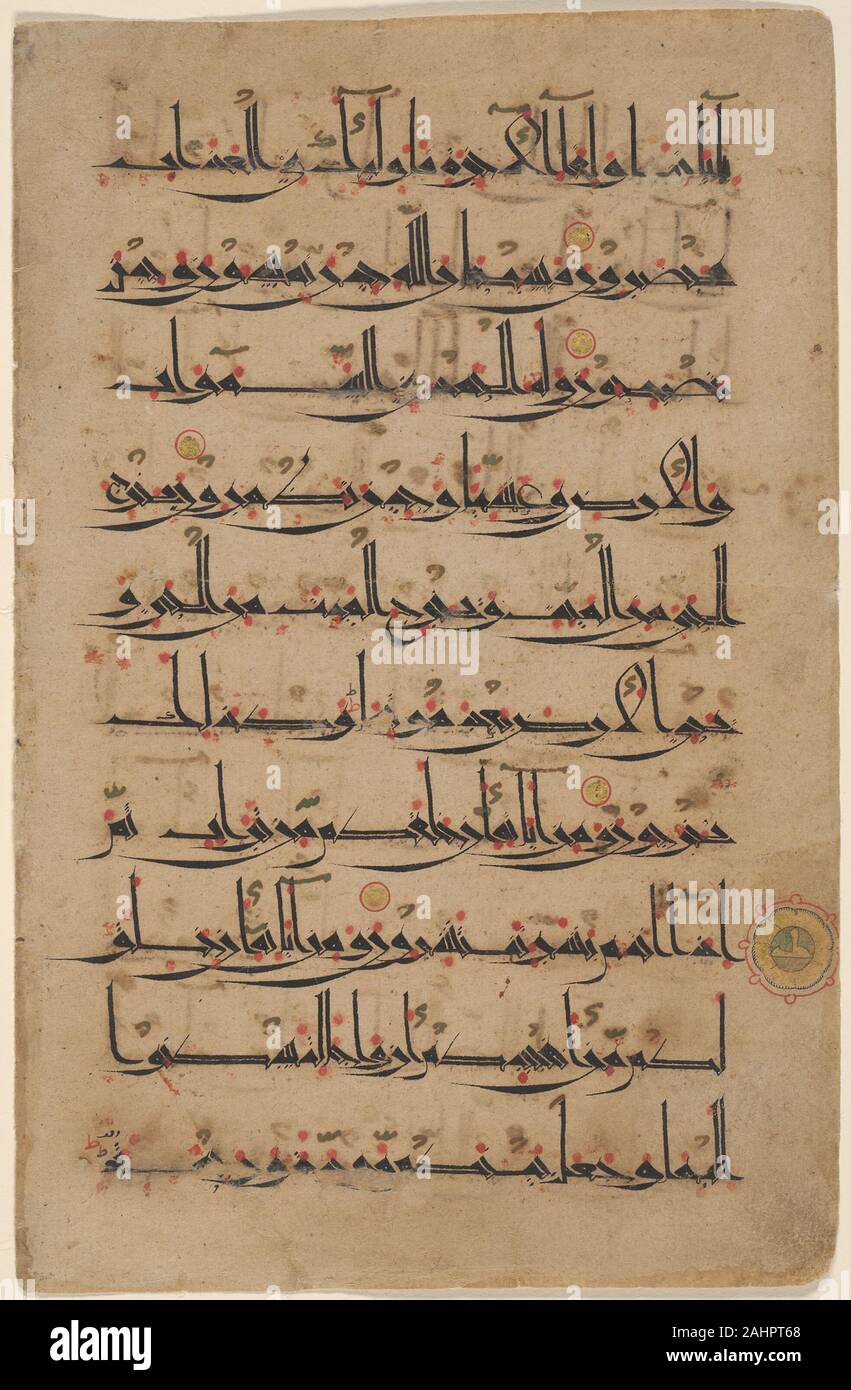 بآياتنا ولقاء الآخرة فأولئك في العذاب
محضرون فسبحن الله حين تمسون وحين
تصبحون وله الحمد في السموات
والأرض وعشيا وحين تظهرون يخرج
الحي من الميت ويخرج الميت من الحي و
يحي الأرض بعد موتها وكذلك
تخرجون ومن آياته أن خلقكم من تراب ثم
إذا أنتم بشر تنتشرون ومن آياته أن خلق
لكم من أنفسكم أزواجا لتسكنوا
إليها وجعل بينكم مودة ورحمة
alamy
alamy
Image ID: 2AHPT68
www.alamy.com